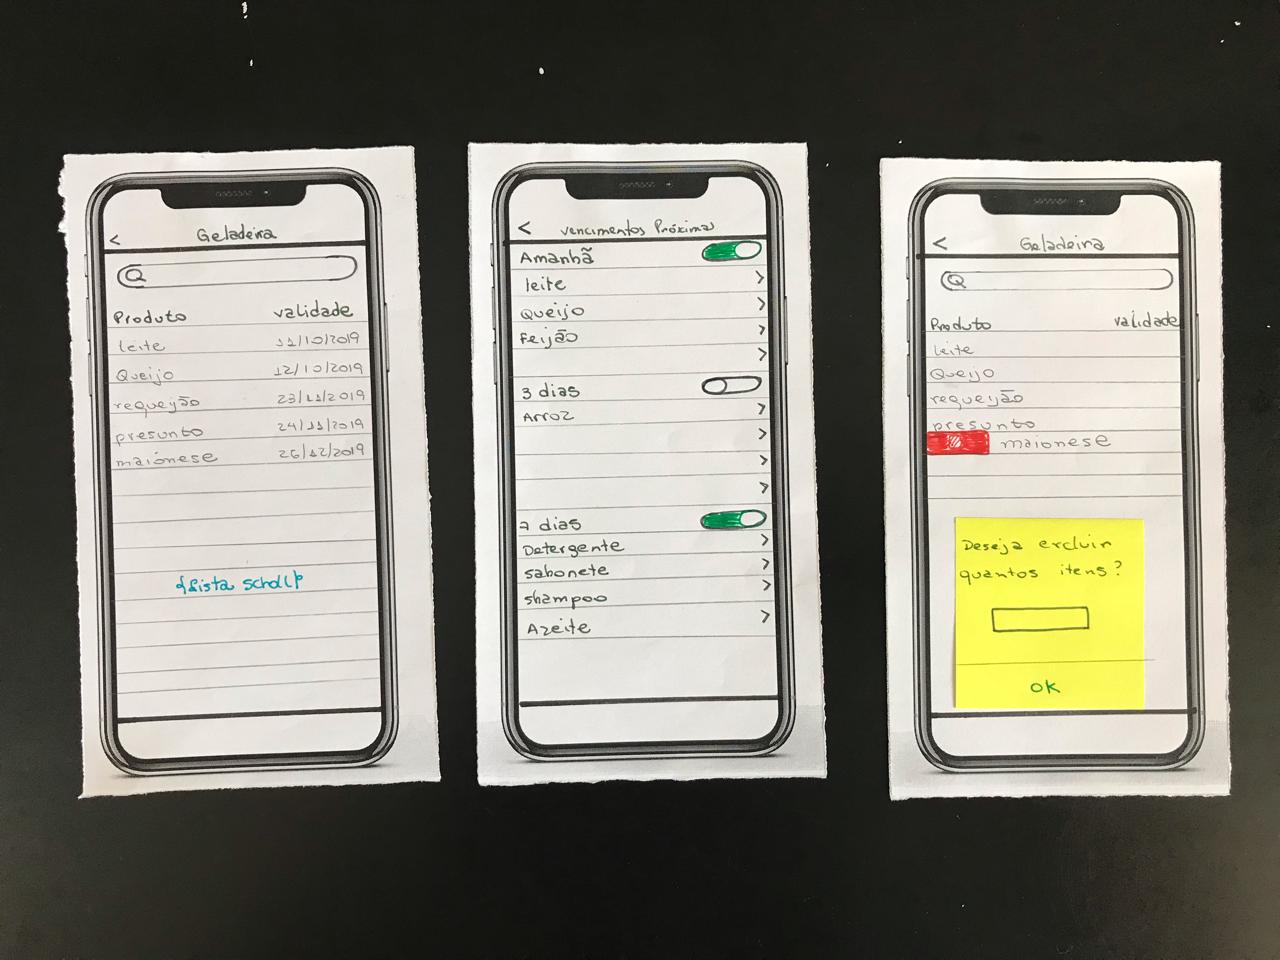 < Geladeira
Produto validade
leite 11/10/2019
Queijo 12/10/2019
requeijão 23/11/2019
presunto 24/11/2019
maionese 26/12/2019
{Lista scholl}
< vencimentos Próximos
Amanhã
leite >
Queijo >
Feijão >
>
3 dias
Arroz >
>
>
>
7 dias
Detergente >
sabonete >
shampoo >
Azeite >
< Geladeira
Produto validade
leite
Queijo
requeijão
presunto
maionese
Deseja excluir
quantos itens?
OK